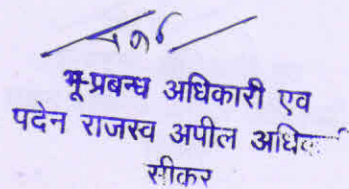 भू-प्रबन्ध अधिकारी एव
पदेन राजस्व अपील
सीकर